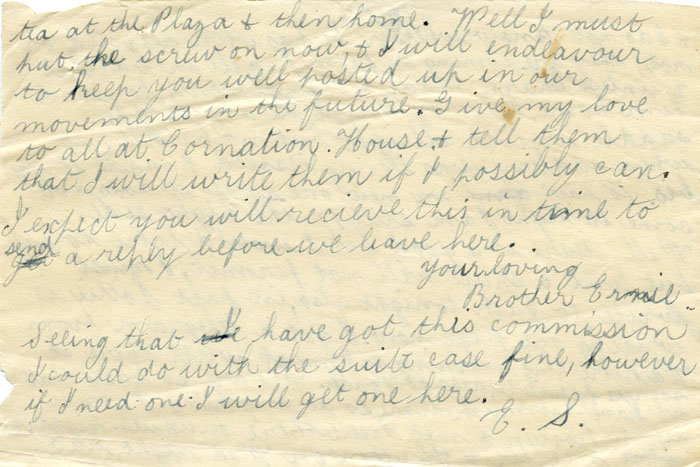 tea at the Plaza & then home. Well I must
put the screw on now, & I will endeavour
to keep you well posted up in our
movements in the future. Give my love
to all at Cornation. House & tell them
that I will write them if I possibly can.
I expect you will recieve this in time to
send a reply before we leave here.
Your loving
Brother Ernie
Seeing that I have got this commission
I could do with the suit case fine, however
if I need one I will get one here.
E. S.